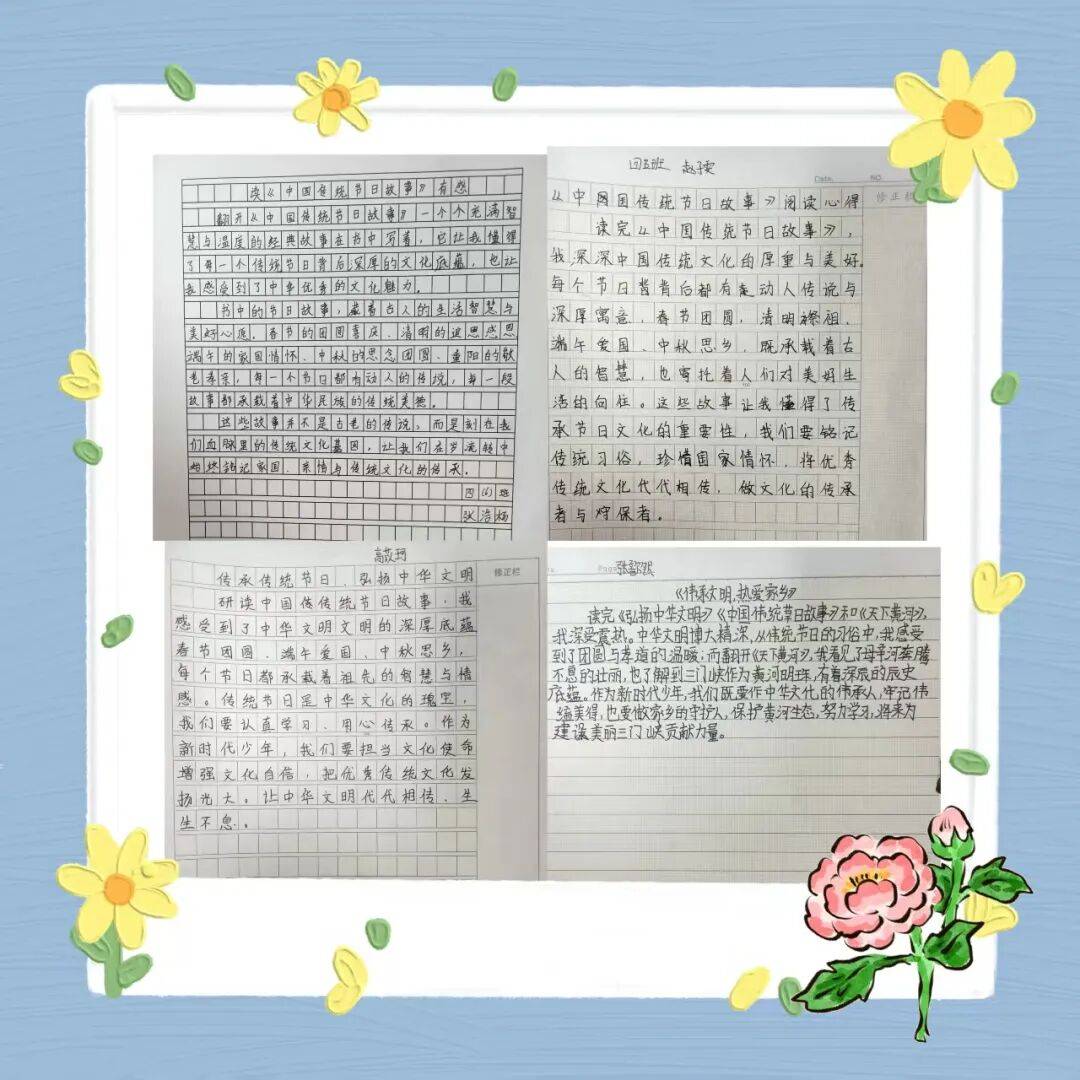 读《中国传统节日故事》有感
翻开《中国传统节日故事》一个个充满智
慧与温度的经典故事在书中写着，它让我懂得
了每一个传统节日背后深厚的文化底蕴，也让
我感受到了中华优秀的文化魅力。
书中的节日故事，藏着古人的生活智慧与
美好心愿。春节的团圆喜庆、清明的追思感恩
端午的家国情怀、中秋的思念团圆、重阳的敬
老孝亲，每一个节日都有动人的传说，每一段
故事都承载着中华民族的传统美德。
这些故事并不是古老的传说，而是刻在我
们血脉里的传统文化基因，让我们在岁流转中
始终铭记家国、亲情与传统文化的传承。
四(6)班
张浩杨
四五班 赵子雯
Date. NO.
修正栏
《中国传统节日故事》阅读心得
读完《中国传统节日故事》，
我深深中国传统文化的厚重与美好。
每个节日背背后都有动人传说与
深厚寓意，春节团圆，清明祭祖，
端午爱国、中秋思乡，既承载着古
人的智慧，也寄托着人们对美好生
活的向往。这些故事让我懂得了传
承节日文化的重要性，我们要铭记
传统习俗，珍惜国家情怀，将优秀
传统文化代代相传，做文化的传承
者与守保者。
修正栏
传承传统节日、弘扬中华文明
研读中国传传统节日故事，我
感受到了中华文明文明的深厚底蕴
春节团圆、端午爱国、中秋思乡，
每个节日都承载着祖先的智慧与情
感。传统节日是中华文化的瑰宝，
我们要认真学习、用心传承。作为
新时代少年，我们要担当文化使命
增强文化自信，把优秀传统文化发
扬光大。让中华文明代代相传、生
生不息。
《传承文明，热爱家乡》
读完《弘扬中华文明》《中国传统节日故事》和《天下黄河》，
我深受震热。中华文明博大精深，从传统节日的习俗中，我感受
到了团圆与孝道的温暖；而翻开《天下黄河》，我看见了母亲河奔腾
不息的壮丽，也了解到三门峡作为黄河明珠，有着深辰的辰史
底蕴。作为新时代少年，我们既要作中华文化的传承人，牢记传
统美得，也要做家乡的守护人，保护黄河生态，努力学习，将来为
建设美丽三门峡贡献力量。